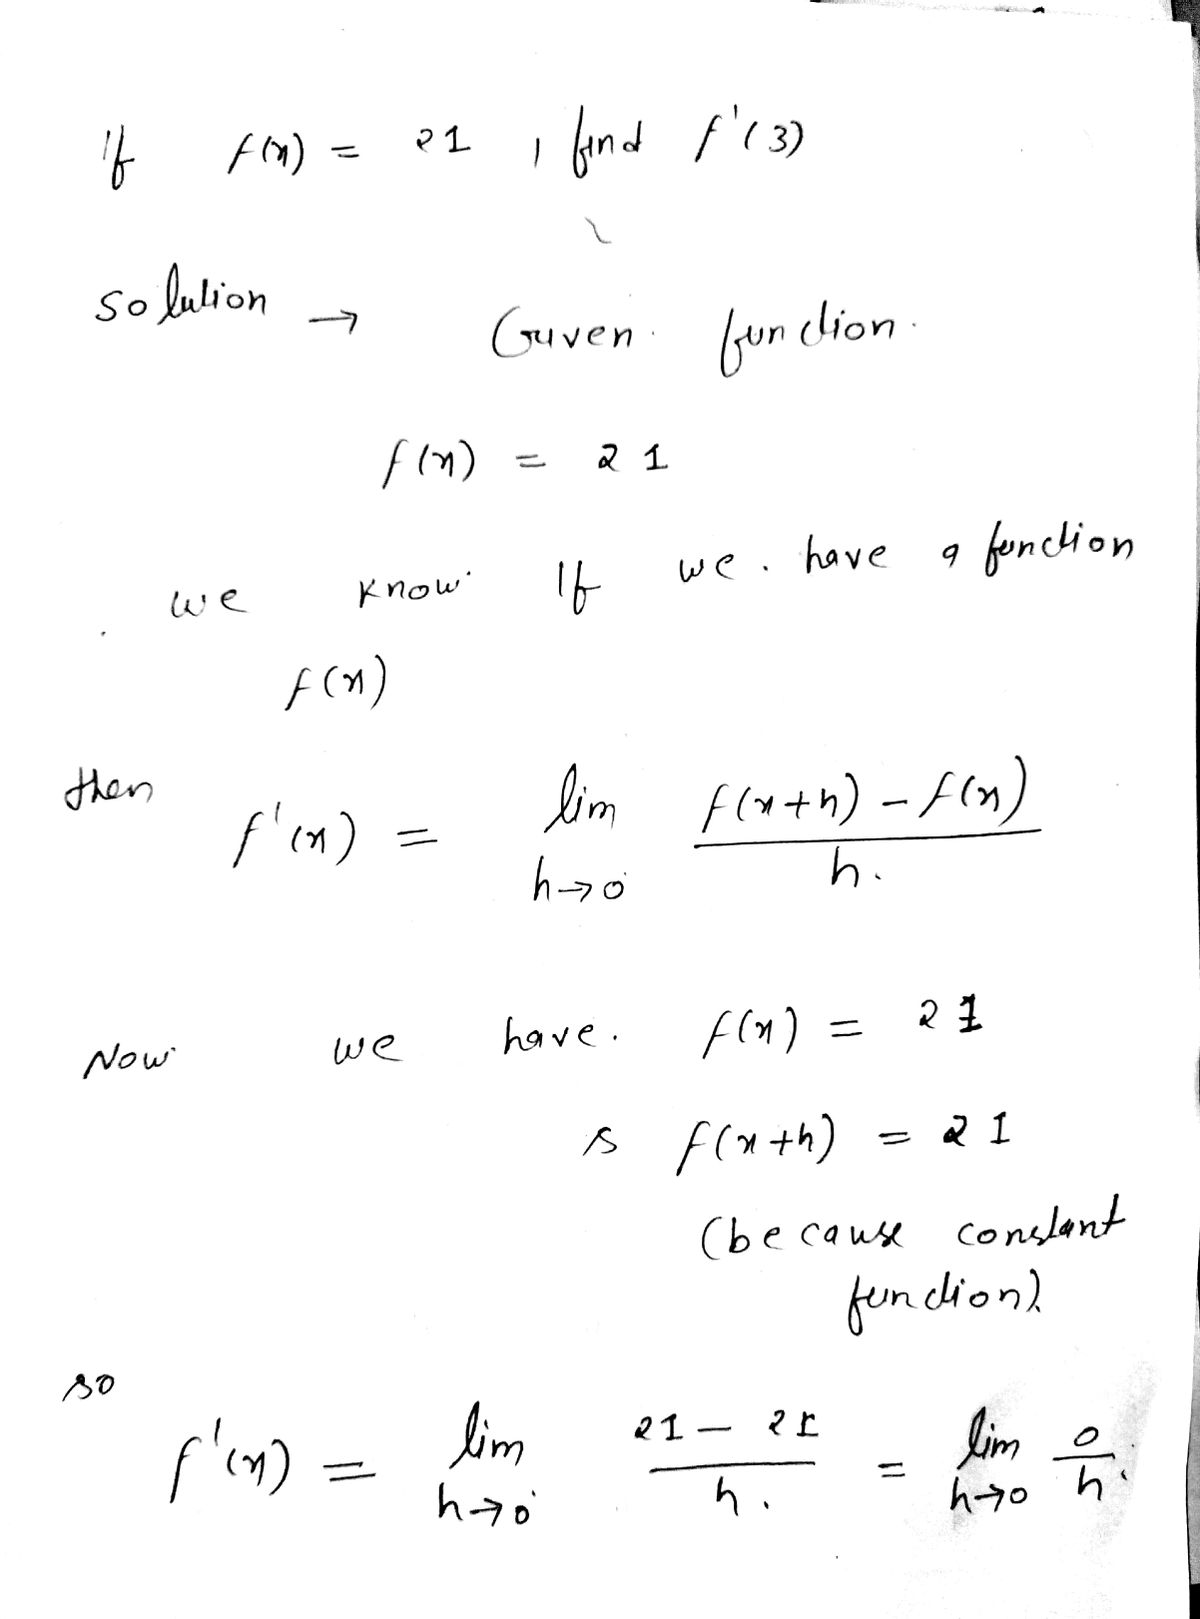 If f(x) = 21 , find f'(3)
solution → Given function.
f(x) = 21
we know If we have a function
f(x)
then f'(x) = lim h→0 f(x+h) - f(x) / h.
Now we have. f(x) = 21
& f(x+h) = 21
(because constant
function).
so
f'(x) = lim h→0 21 - 21 / h. = lim h→0 0 / h.